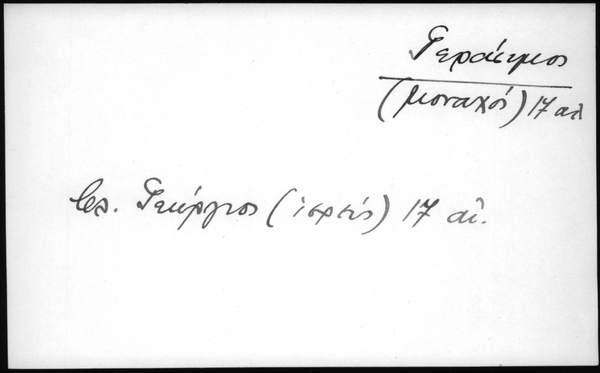 Γεράσιμος
(μοναχός) 17 αι
βλ. Γεώργιος (ιερεύς) 17 αι.